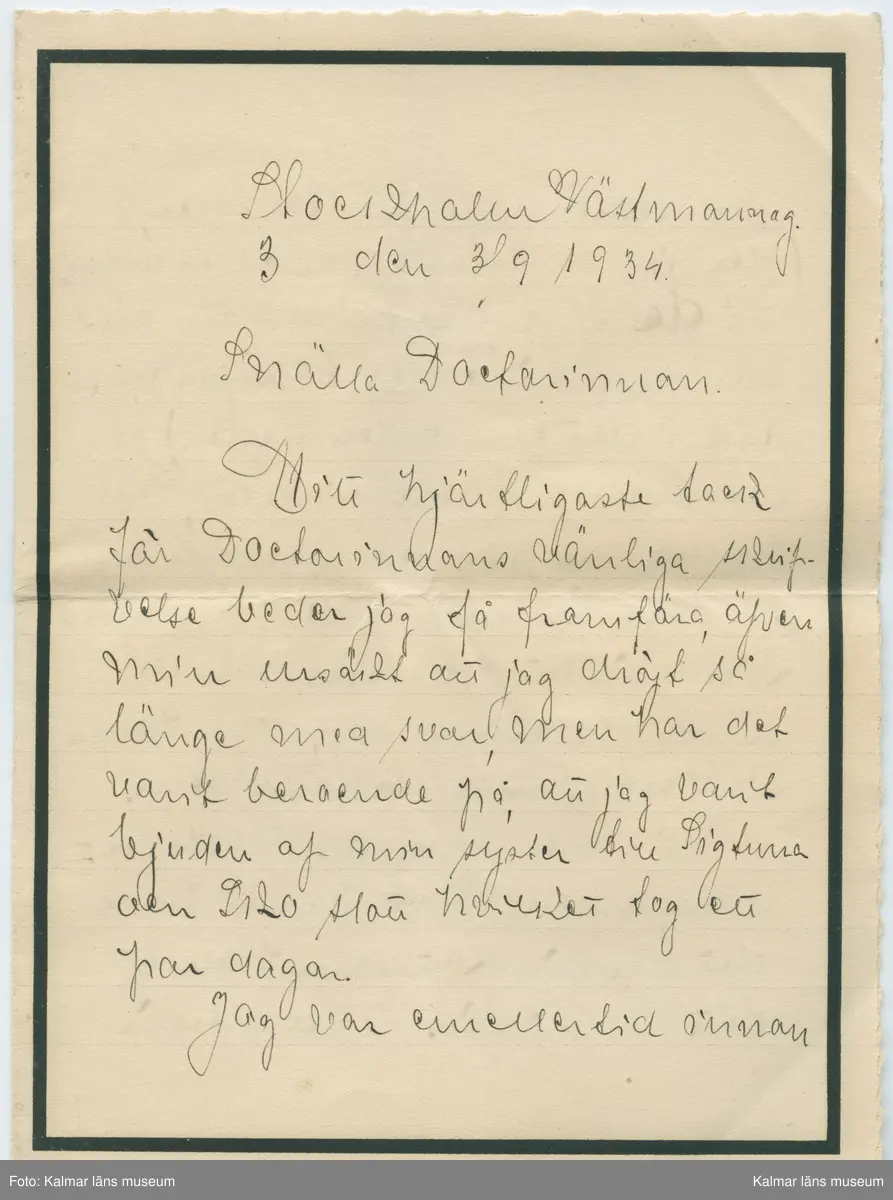 Stockholm Västmannag.
3 den 3/9 1934.
Snälla Doctorinnan.
Mitt hjärtligaste tack
för Doctorinnans vänliga skrif-
velse beder jag få framföra, äfven
min ursäkt att jag dröjt så
länge med svar, men har det
varit beroende på, att jag varit
bjuden af min syster till Sigtuna
och Sko slott hvilket tog ett
par dagar.
Jag var emellertid innan
Foto: Kalmar läns museum
Kalmar läns museum